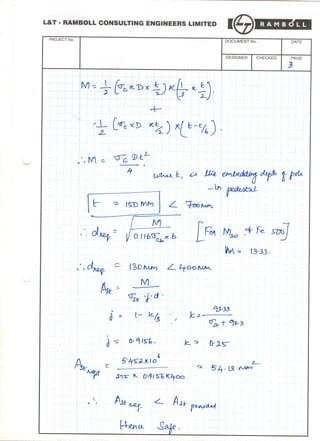 L&T - RAMBØLL CONSULTING ENGINEERS LIMITED
RAMBOLL
PROJECT No.
DOCUMENT No.
DATE
DESIGNED
CHECKED
PAGE
3
M = 1/2 (σc × D × t/2) × (1/3 × t/2)
+
1/2 (σc × D × t/2) × (t - t/6)
∴ M = σc Dt²/4
what t, is the embedding depth of pole
- in pedestal
t = 150 mm < 700 mm
∴ dreq = √(M / 0.116σcb × b) [For M20 & Fe 500]
m = 13.33.
∴ dreq = 130mm < 400mm
Ast = M / σst · j · d
j = 1 - k/3 , k = 93.33 / σst + 93.3
j = 0.9156. k = 0.25
Ast reqd = 5.452×10⁶ / 275 × 0.9156×400 = 54.13 mm²
∴ Ast req. < Ast provided
Hence Safe.